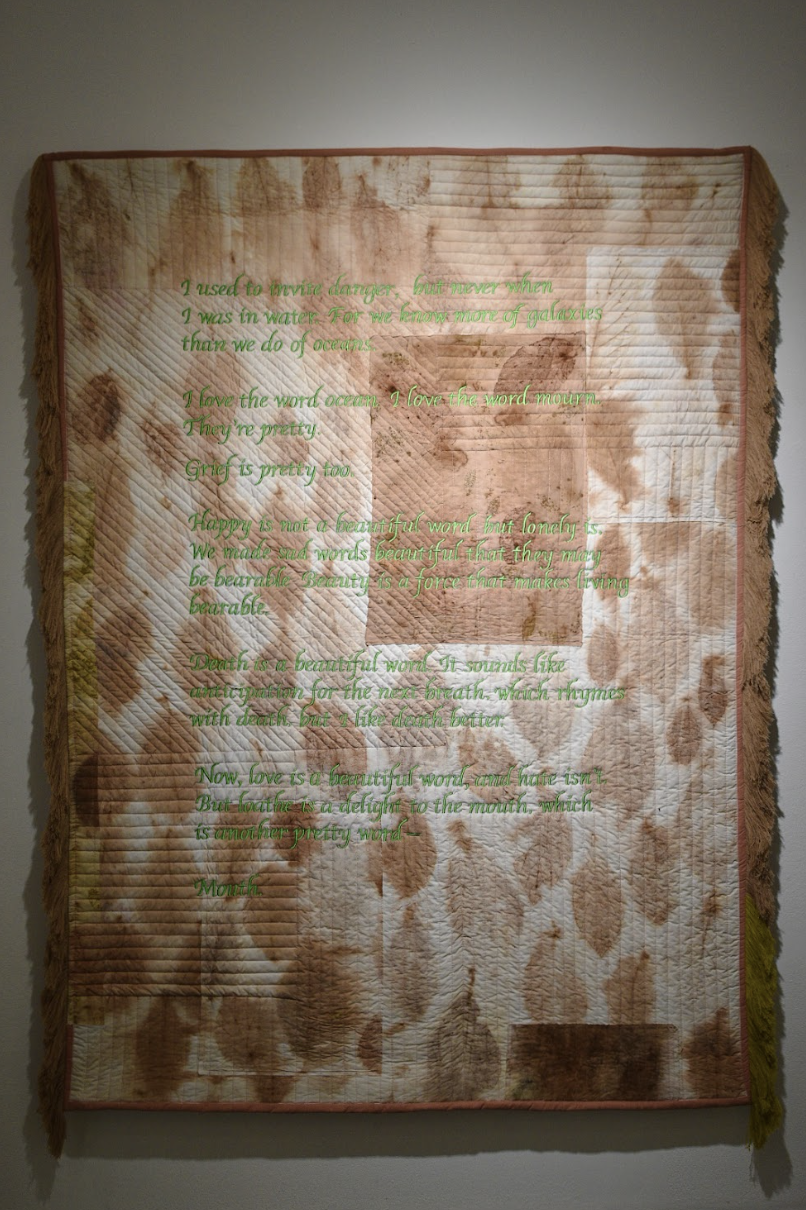 I used to invite danger, but never when
I was in water. For we know more of galaxies
than we do of oceans.
I love the word ocean. I love the word mourn.
They're pretty.
Grief is pretty too.
Happy is not a beautiful word, but lonely is.
We made sad words beautiful that they may
be bearable. Beauty is a force that makes living
bearable.
Death is a beautiful word. It sounds like
anticipation for the next breath, which rhymes
with death, but I like death better.
Now, love is a beautiful word, and hate isn't.
But loathe is a delight to the mouth, which
is another pretty word—
Mouth.